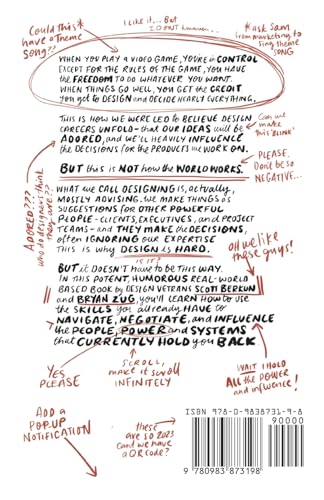 I like it... But
I DONT knowww...
Could this*
have a theme
song??
*ask Sam
from marketing to
sing theme
SONG
WHEN YOU PLAY A VIDEO GAME, YOU'RE in CONTROL
EXCEPT FOR THE RULES OF THE GAME, YOU HAVE
the FREEDOM TO DO WHATEVER YOU WANT.
WHEN THINGS GO WELL, YOU GET the CREDIT
You get to DESIGN and DECIDE NEARLY EVERYTHING.
THIS IS HOW WE WERE LED to BELIEVE DESIGN
CAREERS UNFOLD - that OUR IDEAS will be
ADORED, and WE'LL HEAVILY INFLUENCE
the DECISIONS FOR the PRODUCTS WE WORK ON.
Can we
make
this 'BLINK'
BUT this IS NOT how the WORLD WORKS.
PLEASE.
Don't be so
NEGATIVE...
ADORED???
who do designers think
they are??
WHAT WE CALL DESIGNING IS, actually,
MOSTLY ADVISING. WE MAKE THINGS as
SUGGESTIONS FOR OTHER POWERFUL
PEOPLE - CLIENTS, EXECUTIVES, and PROJECT
TEAMS - and THEY MAKE the DECISIONS,
often IGNORING OUR EXPERTISE
THIS IS why DESIGN is HARD.
IS IT?
oh we like
these guys!
BUT it DOESN'T Have to BE THIS WAY.
IN this POTENT, HUMOROUS REAL-WORLD
BASED BOOK by DESIGN VETRANS SCOTT BERKUN
and BRYAN ZUG, you'll LEARN how to use
the SKILLS you already HAVE to
NAVIGATE, NEGOTIATE, and INFLUENCE
the PEOPLE, POWER and SYSTEMS
that CURRENTLY HOLD you BACK
YES
PLEASE
SCROLL,
make it scroll
INFINITELY
WAIT I HOLD
All the POWER
and influence!
ADD A
POP-UP
NOTIFICATION
these
are so 2023
can we have
a QR code?
ISBN 978-0-9838731-9-8
90000
9 780983 873198